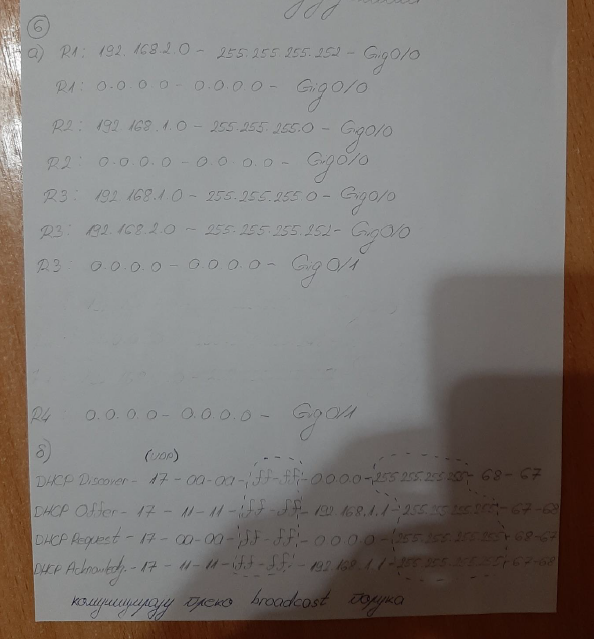 6
а) R1: 192.168.2.0 - 255.255.255.252 - Gig0/0
R1: 0.0.0.0 - 0.0.0.0 - Gig0/0
R2: 192.168.1.0 - 255.255.255.0 - Gig0/0
R2: 0.0.0.0 - 0.0.0.0 - Gig0/0
R3: 192.168.1.0 - 255.255.255.0 - Gig0/0
R3: 192.168.2.0 - 255.255.255.252 - Gig0/0
R3: 0.0.0.0 - 0.0.0.0 - Gig0/1
R4 0.0.0.0 - 0.0.0.0 - Gig0/1
б)
(UDP)
DHCP Discover - 17 - aa-aa - ff-ff - 0.0.0.0 - 255.255.255.255 - 68 - 67
DHCP Offer - 17 - 11-11 - ff-ff - 192.168.1.1 - 255.255.255.255 - 67-68
DHCP Request - 17 - aa-aa - ff-ff - 0.0.0.0 - 255.255.255.255 - 68-67
DHCP Acknowledg. - 17 - 11-11 - ff-ff - 192.168.1.1 - 255.255.255.255 - 67-68
комуницирају преко broadcast порука